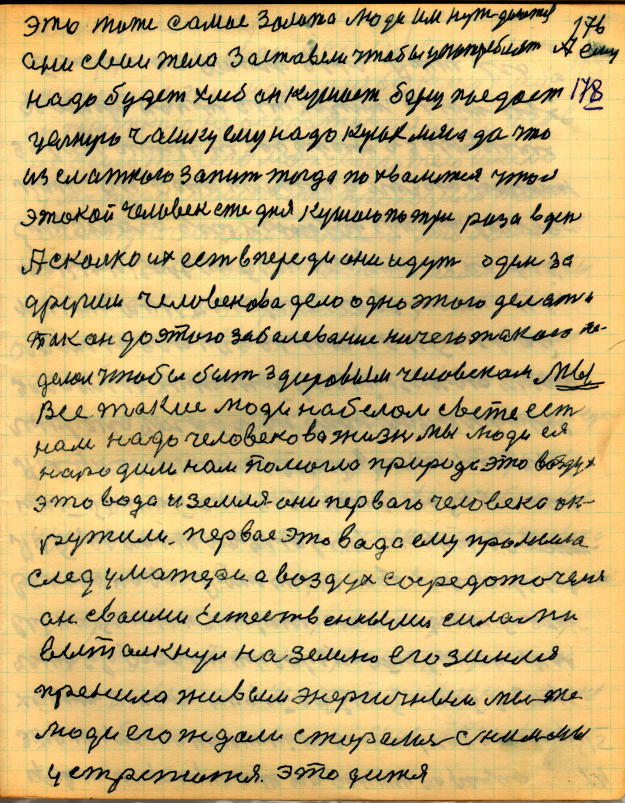 это тоже самае золота люди им нуждаются 176
ани своим тела заставели чтобы употреблят А ему
надо будет хлеб он кушает борщ поедает 178
целную чашку ему надо кусок мяса да что
из слаткого запит тогда похвалится что я
этокой человек сегодня кушаю по три раза в ден
А сколко их ест впереди они идут один за
другим человекова дело одно этого делат и
так он до этого забалевание ничего такого не
делол чтобы быт здоровым человеком Мы
Все такие люди на белом свете ест
нам надо человекова жизн мы люди ея
народили нам помогла природа это воздух
это вода и земля они перваго человека ок-
ружили. первае это вада ему промыла
след у матери а воздух сосредоточеня
он своими естественными силами
вытолкнул на землю его зимля
принила живым энергичным мы же
люди его ждали старались с ним мы
устретится. это дитя